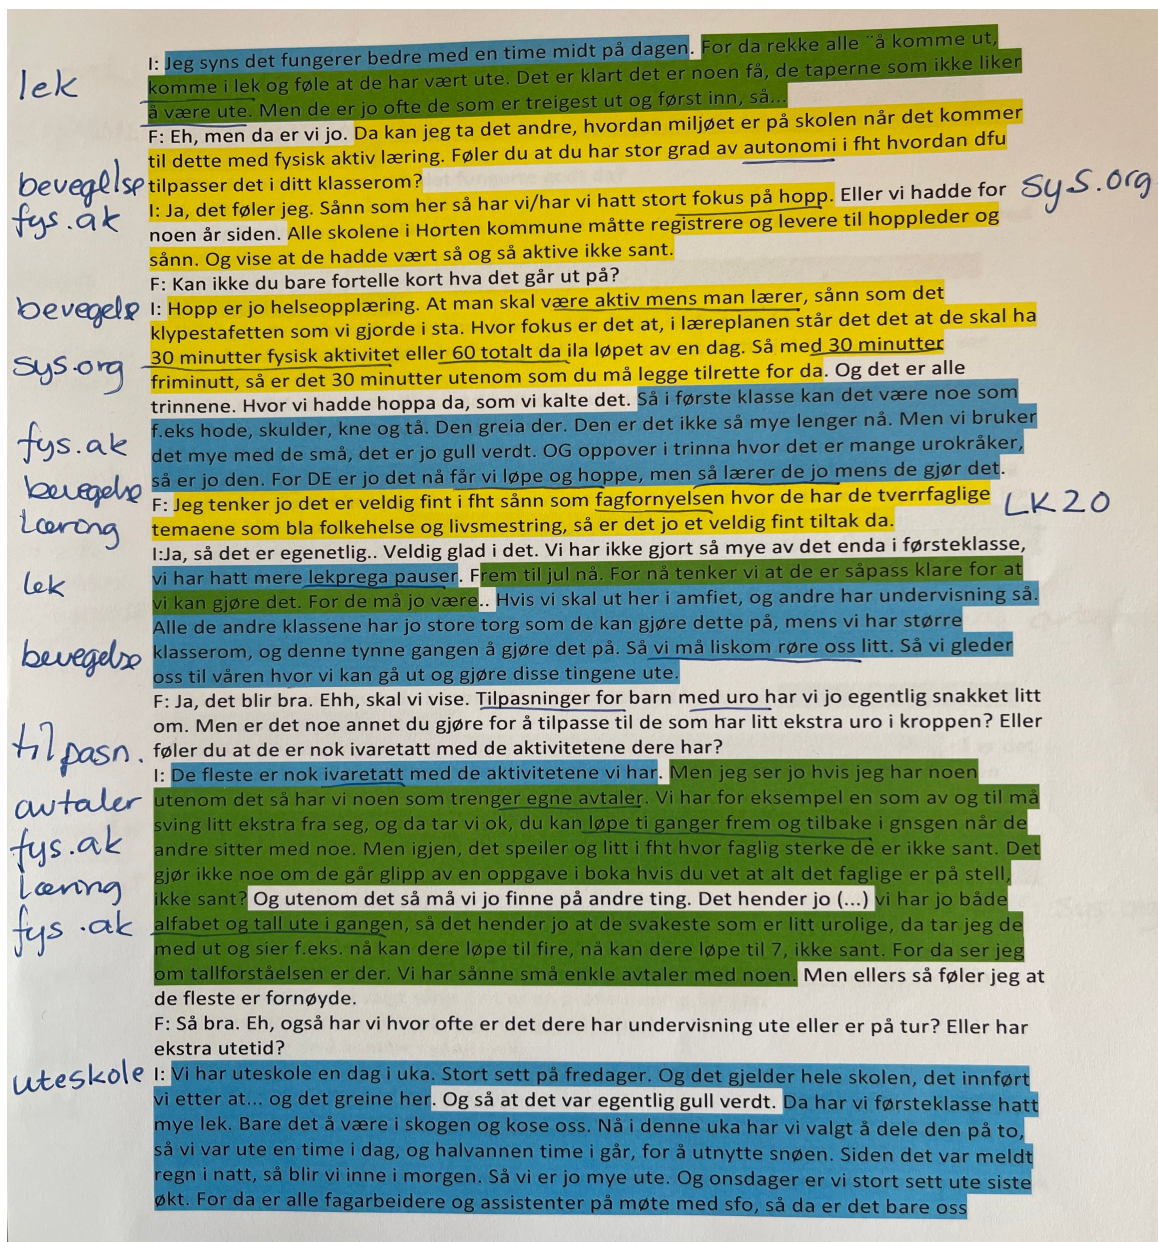 I: Jeg syns det fungerer bedre med en time midt på dagen. For da rekke alle ¨å komme ut,
lek komme i lek og føle at de har vært ute. Det er klart det er noen få, de taperne som ikke liker
å være ute. Men de er jo ofte de som er treigest ut og først inn, så...
F: Eh, men da er vi jo. Da kan jeg ta det andre, hvordan miljøet er på skolen når det kommer
til dette med fysisk aktiv læring. Føler du at du har stor grad av autonomi i fht hvordan dfu
bevegelse tilpasser det i ditt klasserom?
fys.ak I: Ja, det føler jeg. Sånn som her så har vi/har vi hatt stort fokus på hopp. Eller vi hadde for sys.org
noen år siden. Alle skolene i Horten kommune måtte registrere og levere til hoppleder og
sånn. Og vise at de hadde vært så og så aktive ikke sant.
F: Kan ikke du bare fortelle kort hva det går ut på?
bevegelse I: Hopp er jo helseopplæring. At man skal være aktiv mens man lærer, sånn som det
klypestafetten som vi gjorde i sta. Hvor fokus er det at, i læreplanen står det det at de skal ha
sys.org 30 minutter fysisk aktivitet eller 60 totalt da ila løpet av en dag. Så med 30 minutter
friminutt, så er det 30 minutter utenom som du må legge tilrette for da. Og det er alle
trinnene. Hvor vi hadde hoppa da, som vi kalte det. Så i første klasse kan det være noe som
fys.ak f.eks hode, skulder, kne og tå. Den greia der. Den er det ikke så mye lenger nå. Men vi bruker
det mye med de små, det er jo gull verdt. OG oppover i trinna hvor det er mange urokråker,
bevegelse så er jo den. For DE er jo det nå får vi løpe og hoppe, men så lærer de jo mens de gjør det.
F: Jeg tenker jo det er veldig fint i fht sånn som fagfornyelsen hvor de har de tverrfaglige LK20
læring temaene som bla folkehelse og livsmestring, så er det jo et veldig fint tiltak da.
I:Ja, så det er egenetlig.. Veldig glad i det. Vi har ikke gjort så mye av det enda i førsteklasse,
lek vi har hatt mere lekprega pauser. Frem til jul nå. For nå tenker vi at de er såpass klare for at
vi kan gjøre det. For de må jo være.. Hvis vi skal ut her i amfiet, og andre har undervisning så.
Alle de andre klassene har jo store torg som de kan gjøre dette på, mens vi har større
bevegelse klasserom, og denne tynne gangen å gjøre det på. Så vi må liskom røre oss litt. Så vi gleder
oss til våren hvor vi kan gå ut og gjøre disse tingene ute.
F: Ja, det blir bra. Ehh, skal vi vise. Tilpasninger for barn med uro har vi jo egentlig snakket litt
om. Men er det noe annet du gjøre for å tilpasse til de som har litt ekstra uro i kroppen? Eller
tilpasn. føler du at de er nok ivaretatt med de aktivitetene dere har?
I: De fleste er nok ivaretatt med de aktivitetene vi har. Men jeg ser jo hvis jeg har noen
avtaler utenom det så har vi noen som trenger egne avtaler. Vi har for eksempel en som av og til må
sving litt ekstra fra seg, og da tar vi ok, du kan løpe ti ganger frem og tilbake i gnsgen når de
fys.ak andre sitter med noe. Men igjen, det speiler og litt i fht hvor faglig sterke de er ikke sant. Det
læring gjør ikke noe om de går glipp av en oppgave i boka hvis du vet at alt det faglige er på stell,
ikke sant? Og utenom det så må vi jo finne på andre ting. Det hender jo (...) vi har jo både
fys.ak alfabet og tall ute i gangen, så det hender jo at de svakeste som er litt urolige, da tar jeg de
med ut og sier f.eks. nå kan dere løpe til fire, nå kan dere løpe til 7, ikke sant. For da ser jeg
om tallforståelsen er der. Vi har sånne små enkle avtaler med noen. Men ellers så føler jeg at
de fleste er fornøyde.
F: Så bra. Eh, også har vi hvor ofte er det dere har undervisning ute eller er på tur? Eller har
ekstra utetid?
uteskole I: Vi har uteskole en dag i uka. Stort sett på fredager. Og det gjelder hele skolen, det innført
vi etter at... og det greine her. Og så at det var egentlig gull verdt. Da har vi førsteklasse hatt
mye lek. Bare det å være i skogen og kose oss. Nå i denne uka har vi valgt å dele den på to,
så vi var ute en time i dag, og halvannen time i går, for å utnytte snøen. Siden det var meldt
regn i natt, så blir vi inne i morgen. Så vi er jo mye ute. Og onsdager er vi stort sett ute siste
økt. For da er alle fagarbeidere og assistenter på møte med sfo, så da er det bare oss